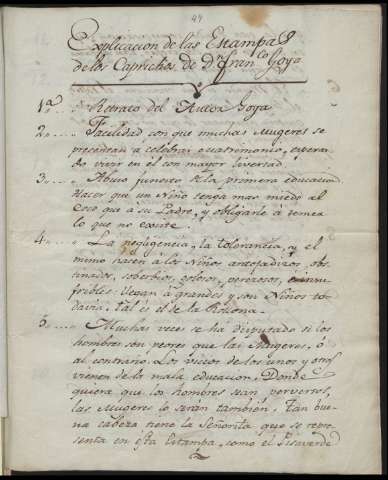 Explicacion de las Estampas
de los Caprichos de Dn. Franco. Goya
1a. Retrato del Autor Goya
2a. Facilidad con que muchas Mugeres se
presentan à celebrar matrimonio, esperan
do vivir en él con mayor livertad.
3. Abuso funesto de la primera educacion
Hacer que un Niño tenga mas miedo al
Coco que à su Padre, y obligarle à temer
lo que no existe.
4. La negligencia, la tolerancia, y el
mimo hacen à los Niños antojadizos, obs-
tinados, sobervios, golosos, perezosos, insu
fribles: llegan à grandes y son Niños to-
davia. Tal es el de la Rollona.
5. Muchas veces se ha disputado si los
hombres son peores que las Mugeres, ò
al contrario. Los vicios de los unos y otros
vienen de la mala educacion. Donde
quiera que los hombres sean perversos,
las Mugeres lo seràn tambien. Tan bue-
na cabeza tiene la Señorita que se repre-
senta en esta Estampa, como el Pisaverde